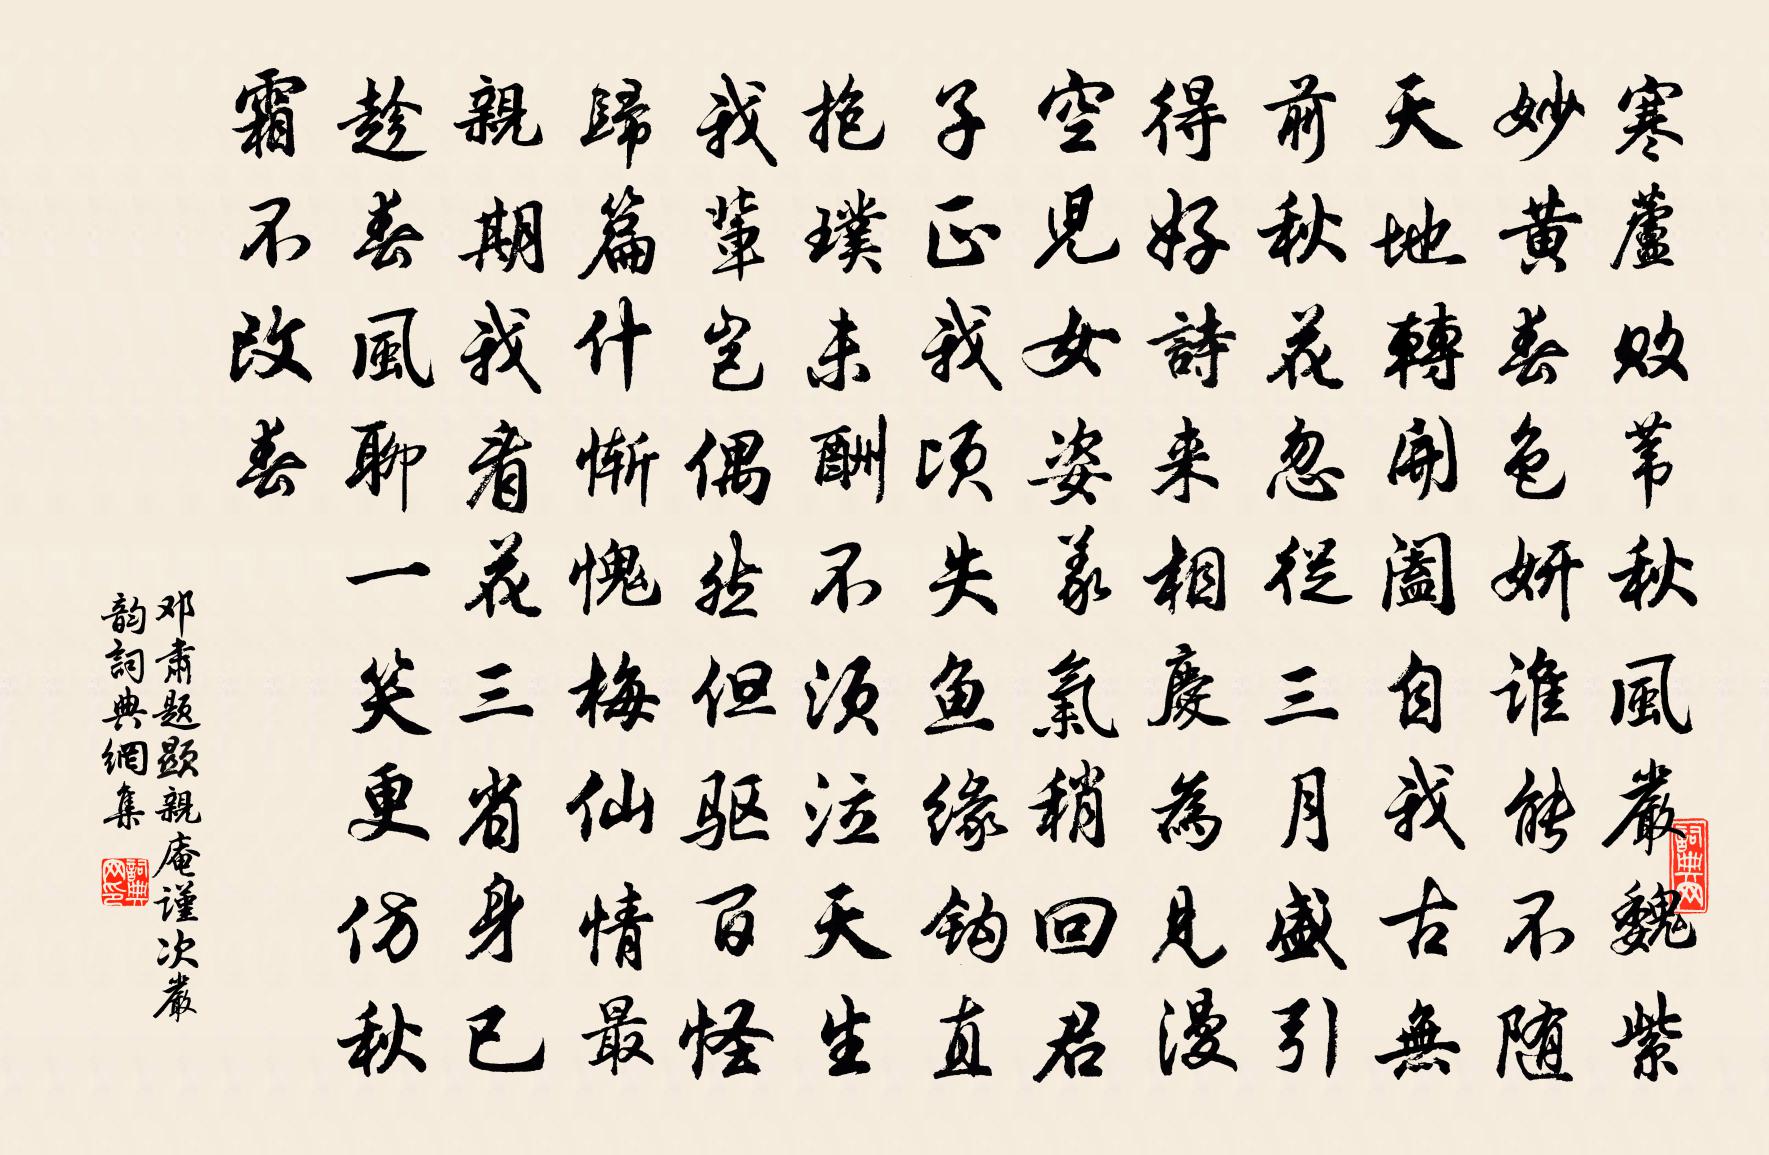 寒蘆敗葦秋風嚴魏紫
妙黄春色妍誰能不随
天地轉開闔自我古無
前秋花忽從三月盛引
得好詩来相慶為見漫
空兒女姿義氣稍回君
子正我頃失魚緣鈎直
抱璞未酬不須泣天生
我輩豈偶然但驱百怪
歸篇什慚愧梅仙情最
親期我看花三省身已
趁春風聊一笑更仿秋
霜不改春
邓肃题顕親庵谨次嚴
韵詞典網集
詞典网
詞典网印